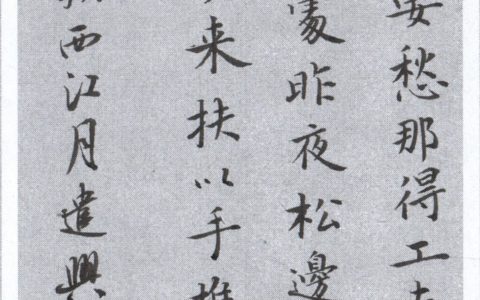 要愁那得工
處昨夜松邊
来扶以手推
西江月遣興